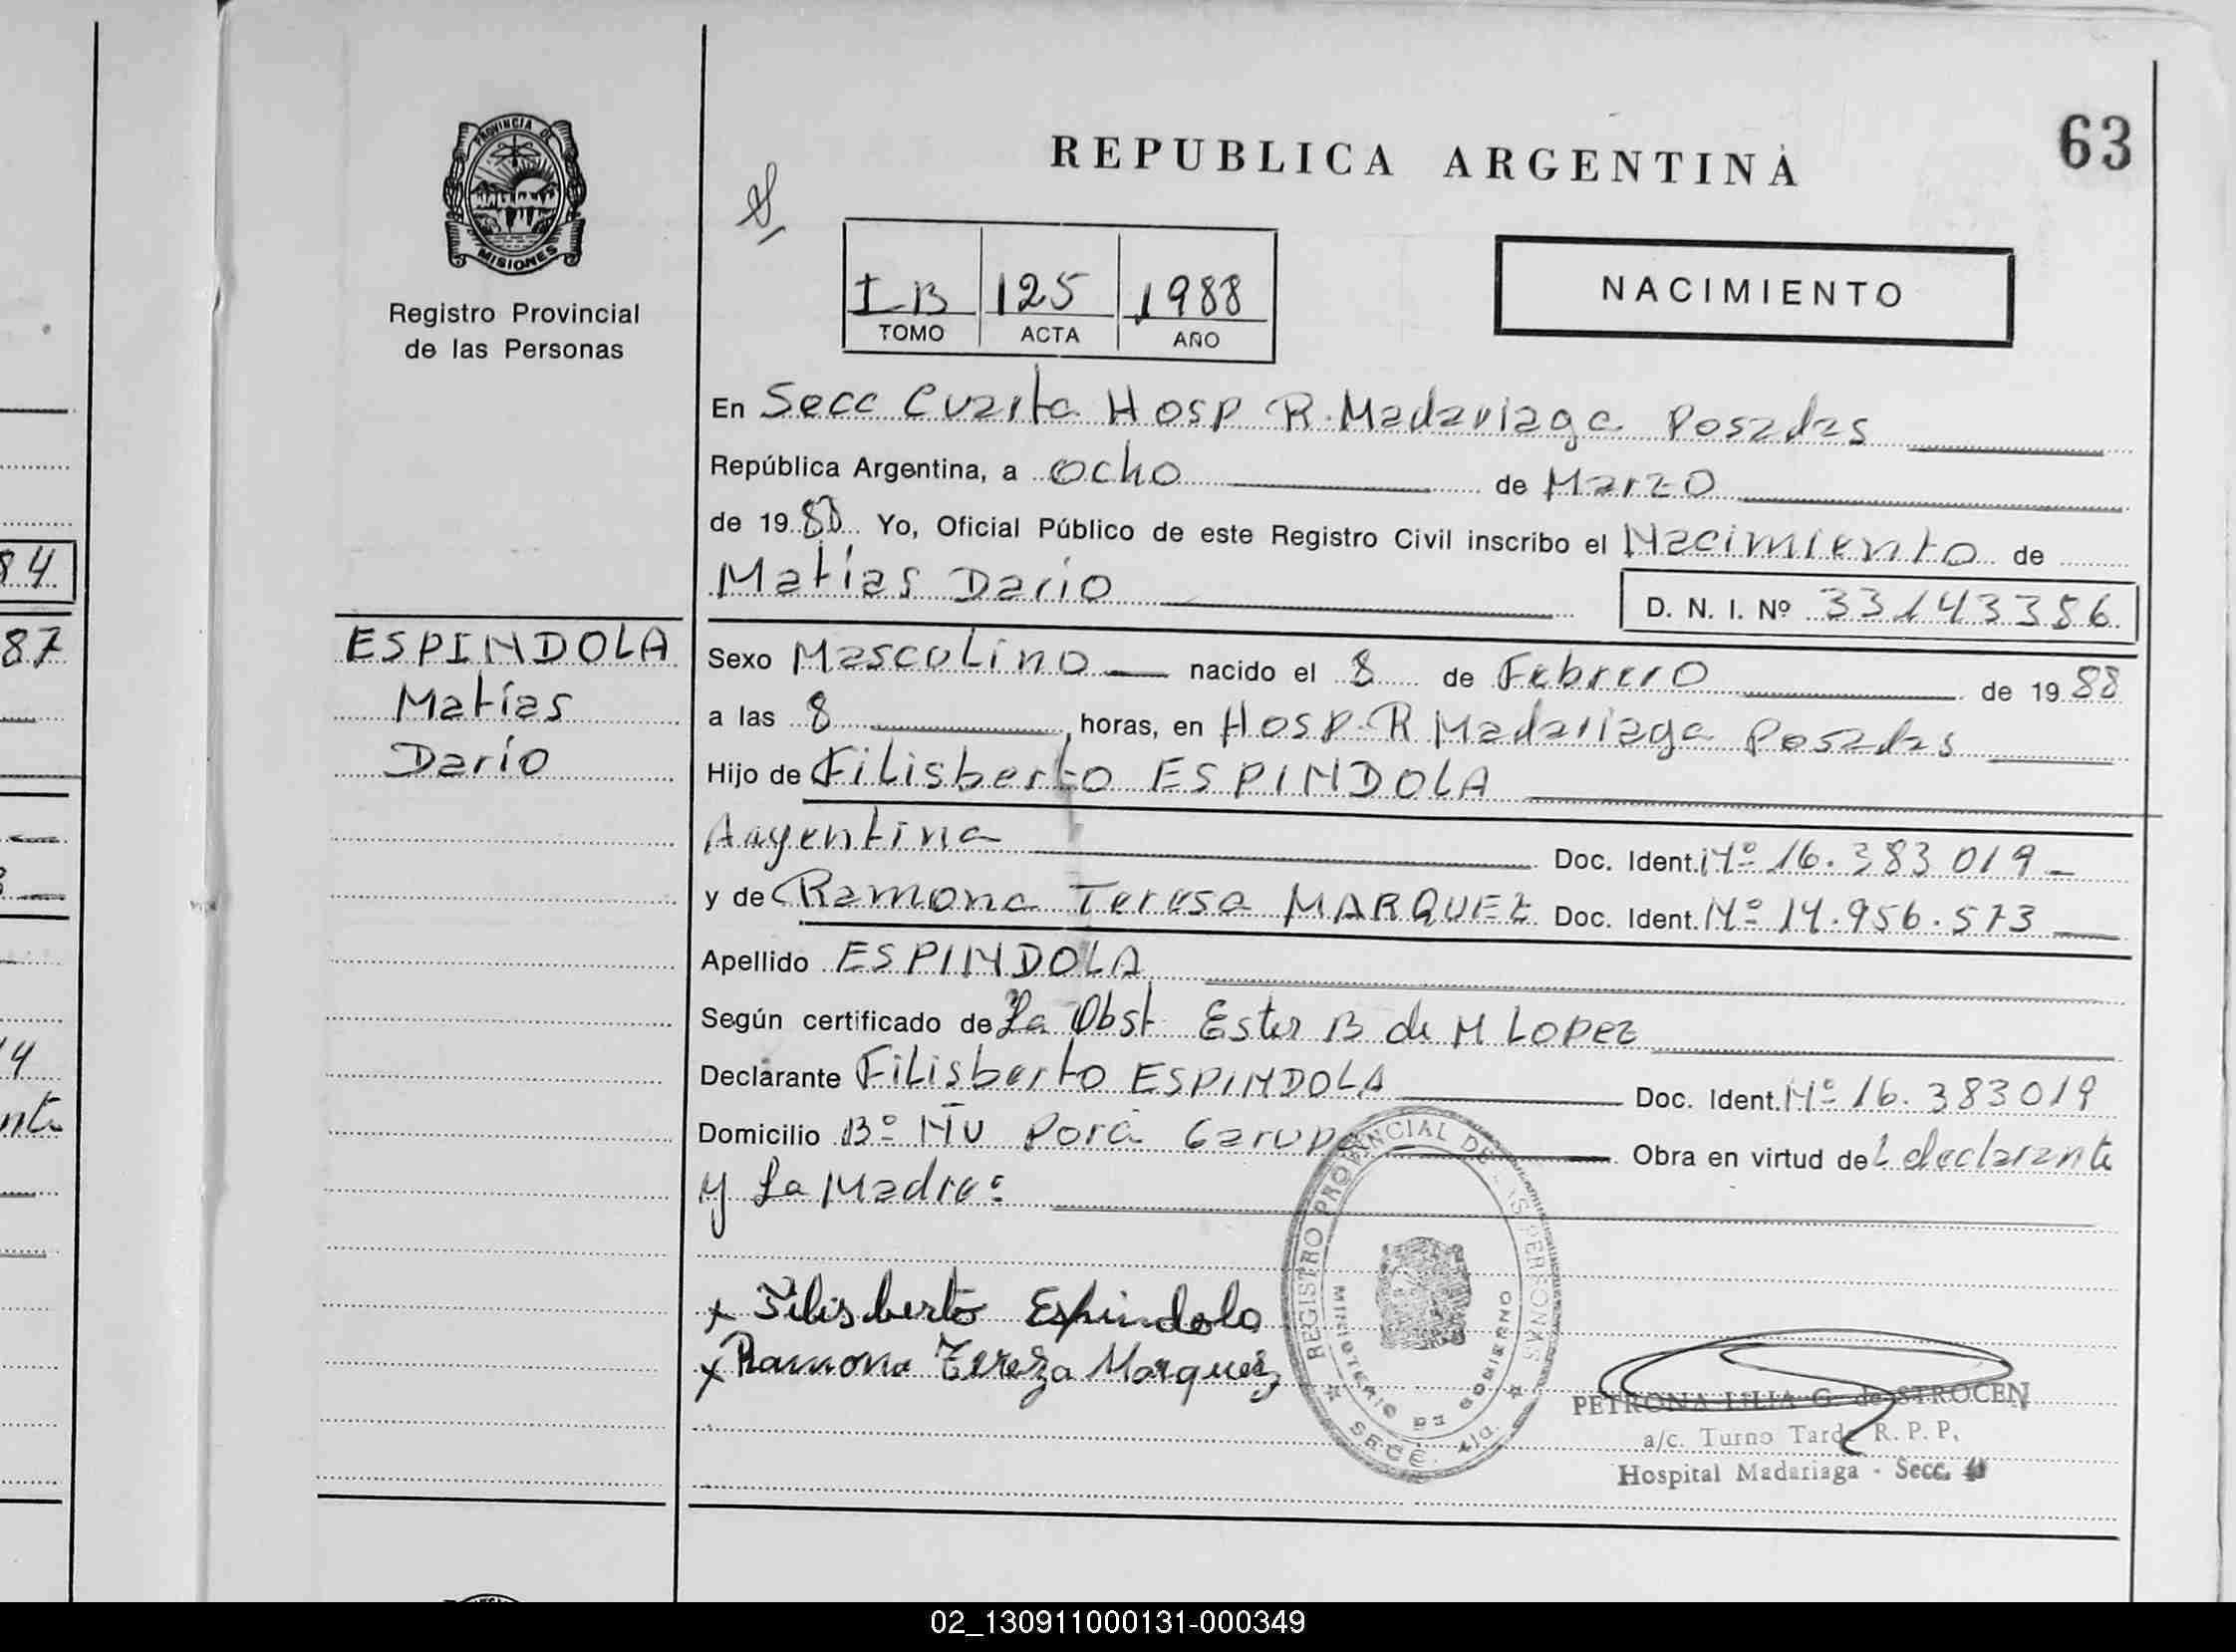 84
87
14
nte
PROVINCIA DE
MISIONES
Registro Provincial
de las Personas
ESPINDOLA
Matías
Darío
REPUBLICA ARGENTINA
63
I B 125 1988
TOMO ACTA AÑO
NACIMIENTO
En Secc Cuarta Hosp R. Madariaga Posadas
República Argentina, a ocho de Marzo
de 1988 Yo, Oficial Público de este Registro Civil inscribo el Nacimiento de
Matías Dario D. N. I. Nº 33143386
Sexo Mascolino nacido el 8 de Febrero de 1988
a las 8 horas, en Hosp. R Madariaga Posadas
Hijo de Filisberto ESPINDOLA
Argentina Doc. Ident. Nº 16.383019
y de Ramona Teresa MARQUEZ Doc. Ident. Nº 14.956.573
Apellido ESPINDOLA
Según certificado de La Obst Ester B de M Lopez
Declarante Filisberto ESPINDOLA Doc. Ident. Nº 16.383019
Domicilio Bº Ñu Porá Garupa Obra en virtud del declarante
y La Madre:
x Filisberto Espindola
x Ramona Tereza Marquez
REGISTRO PROVINCIAL DE LAS PERSONAS
MINISTERIO DE GOBIERNO
SECC. 4ta.
PETRONA LILIA G. de STROCEN
a/c. Turno Tarde R. P. P.
Hospital Madariaga - Secc.
02_130911000131-000349